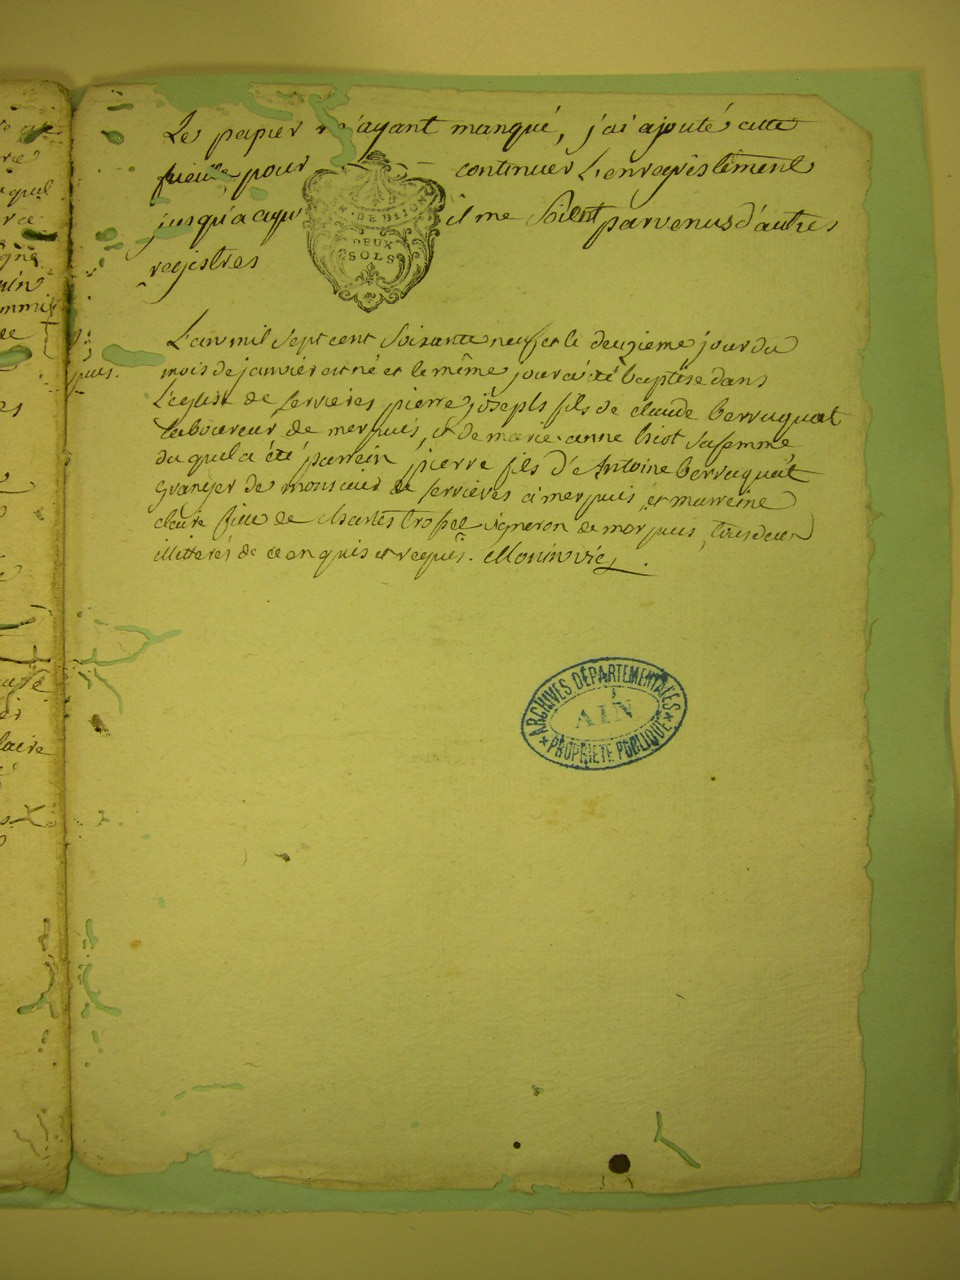 Le papier m'ayant manqué, j'ai ajouté cette
feuille, pour continuer L'enregistrement
jusqu'a cequ' il me soient parvenus d'autres
registres
DE DIJON
DEUX
SOLS
L'an mil sept cent soixante neuf et le deuzieme jour du
mois de janvier est né et le même jour a été baptisé dans
L'eglise de serrieres pierre joseph fils de claude berruquat
laboureur de merpuis, et de marie-anne biot sa femme
du quel a été parrein pierre fils d'Antoine berruquat
Granger de monsieur de serrieres a merpuis, et marreine
claire fille de charles trossel vigneron de morpuis, tous deux
illitterés de ce enquis et requis. Monin vic
ARCHIVES DÉPARTEMENTALES
AIN
PROPRIETE PUBLIQUE